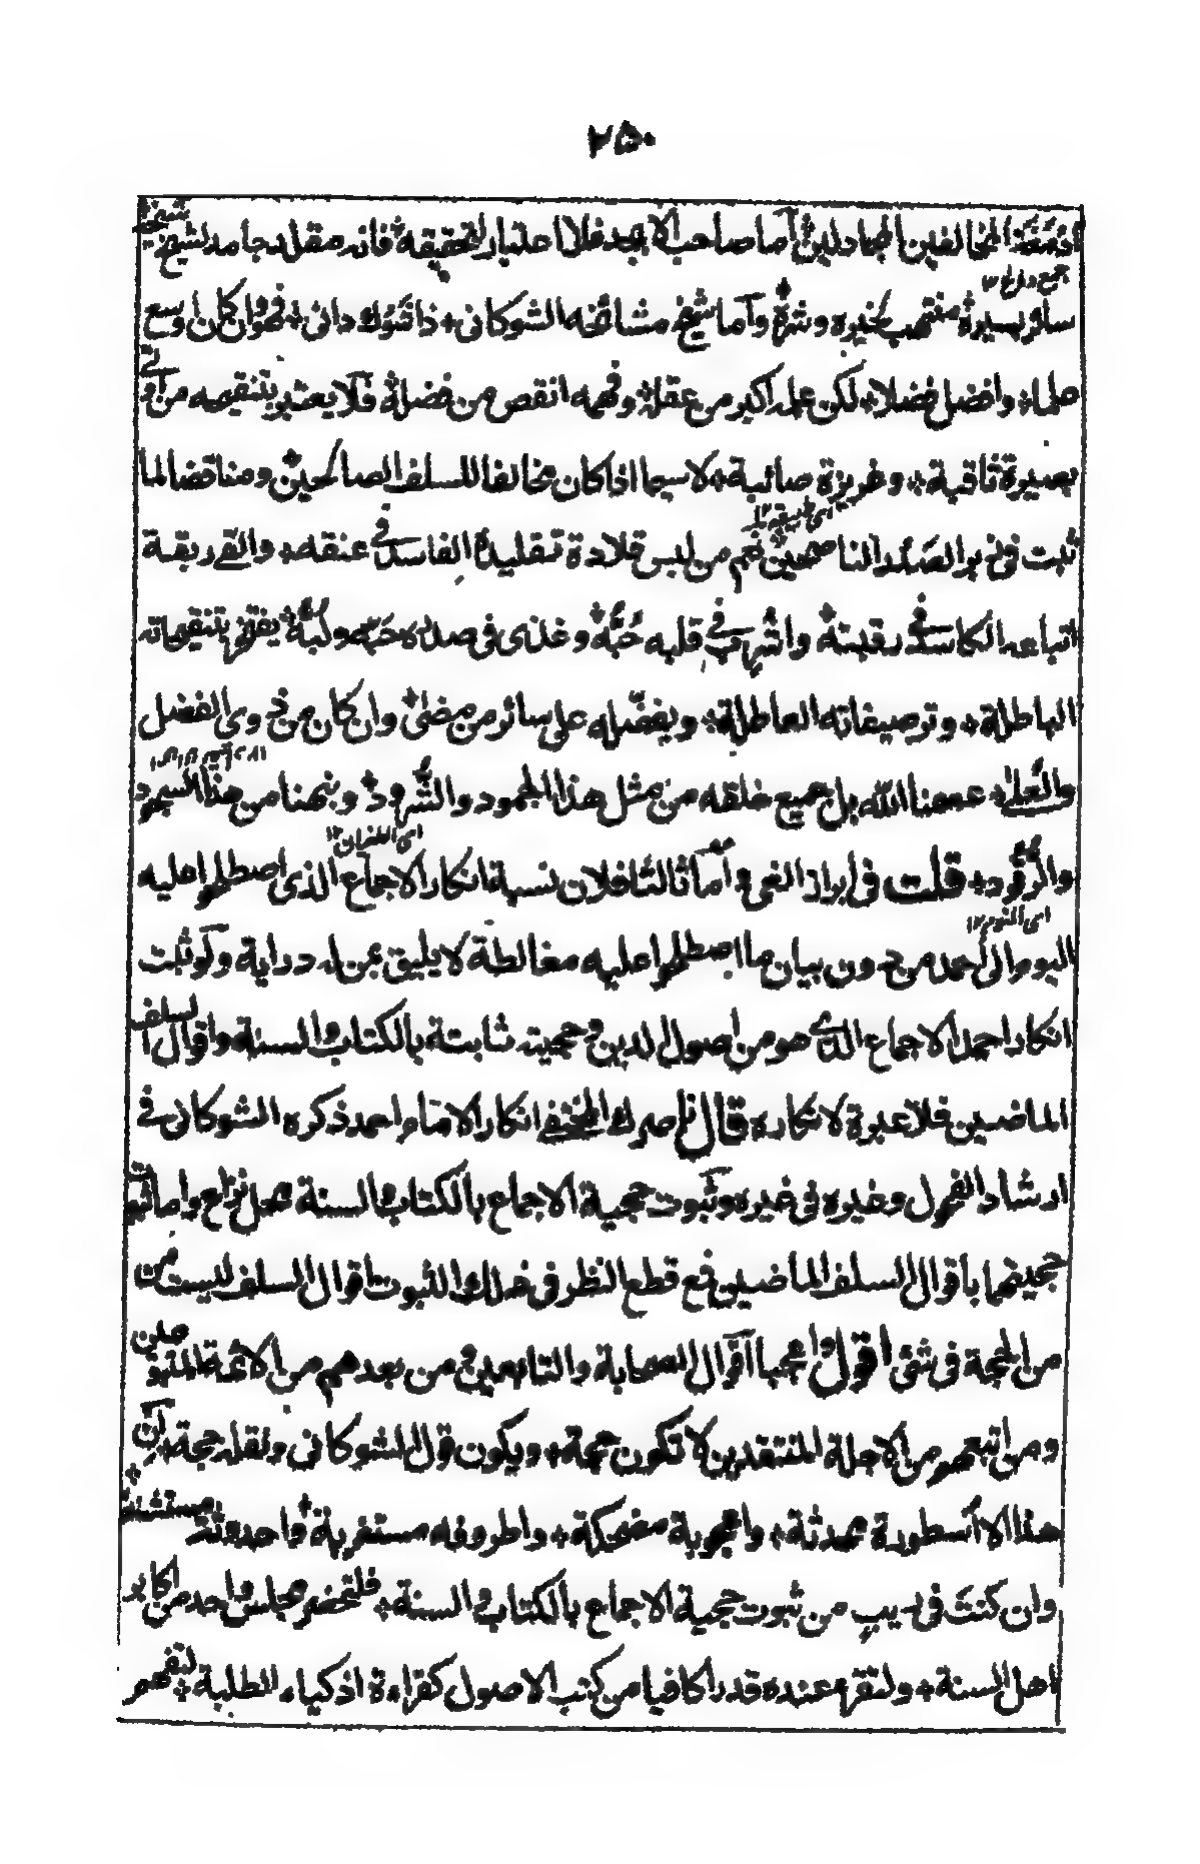 ٢٥٠
المخالفين المجادلين أما صاحب الابجد فلا اعتبار لتحقيقه فانه مقلد جامد لشيخ شيخه
جمع دراع ١٢
سائر بسيره منتحب بخيره وشره وأما شيخ مشائخه الشوكاني ذاشوك داني فهو وان كان اوسع
علما وافضل فضلا لكن علمه اكبر من عقله وفهمه انقص من فضله فلا يعتبر بتنقيحه من أولى
بصيرة ثاقبة وغريزة صائبة لا سيما اذا كان مخالفا للسلف الصالحين ومناقضا لما
ثبت في زبر الصمد الناصحين نعم من لبس قلادة تقليده الفاسد في عنقه والقى ربقة
اتباعه الكاسد في رقبته واشرب في قلبه حُبّه وغذى في صدره حَبّه ولُبّه يفتخر بتنقيحاته
الباطلة وترصيفاته العاطلة ويفضله على سائر من مضى وان كان من ذوي الفضل
والعلى عصمنا الله بل جميع خلقه من مثل هذا الجمود والشرود ونبهنا من هذا السمود
اى الغفران ١٢
والرُّقود قلت في ابراز الغي وأما ثالثا فلان نسبة انكار الاجماع الذي اصطلحوا عليه
اى النوم ١٢
اليوم الى أحمد من دون بيان ما اصطلحوا عليه مغالطة لا يليق بمن له دراية ولو ثبت
انكار احمد الاجماع الذي هو من اصول الدين وحجيته ثابتة بالكتاب والسنة واقوال السلف
الماضين فلا عبرة لانكاره قال ناصرك المختفي انكار الامام احمد ذكره الشوكاني في
ارشاد الفحول وغيره في غيره وثبوت حجية الاجماع بالكتاب والسنة محل نزاع واما ثبوت
حجيتهما بأقوال السلف الماضين فمع قطع النظر في ذلك الثبوت اقوال السلف ليست من
من الحجة في شئ اقول وا عجبا أقوال الصحابة والتابعين ومن بعدهم من الائمة المتبوعين
ومن اتبعهم من الاجلة المنتقدين لا تكون حجة ويكون قول الشوكاني ونقله حجة ان
هذا الا أسطورة محدثة واعجوبة مضحكة واطروفه مستغربة واحدوثة مستشنعة
وان كنت في ريب من ثبوت حجية الاجماع بالكتاب والسنة فلتحضر مجلس واحد من اكابر
اهل السنة ولتقرء عنده قدرا كافيا من كتب الاصول كقراءة اذكياء الطلبة لتفهم